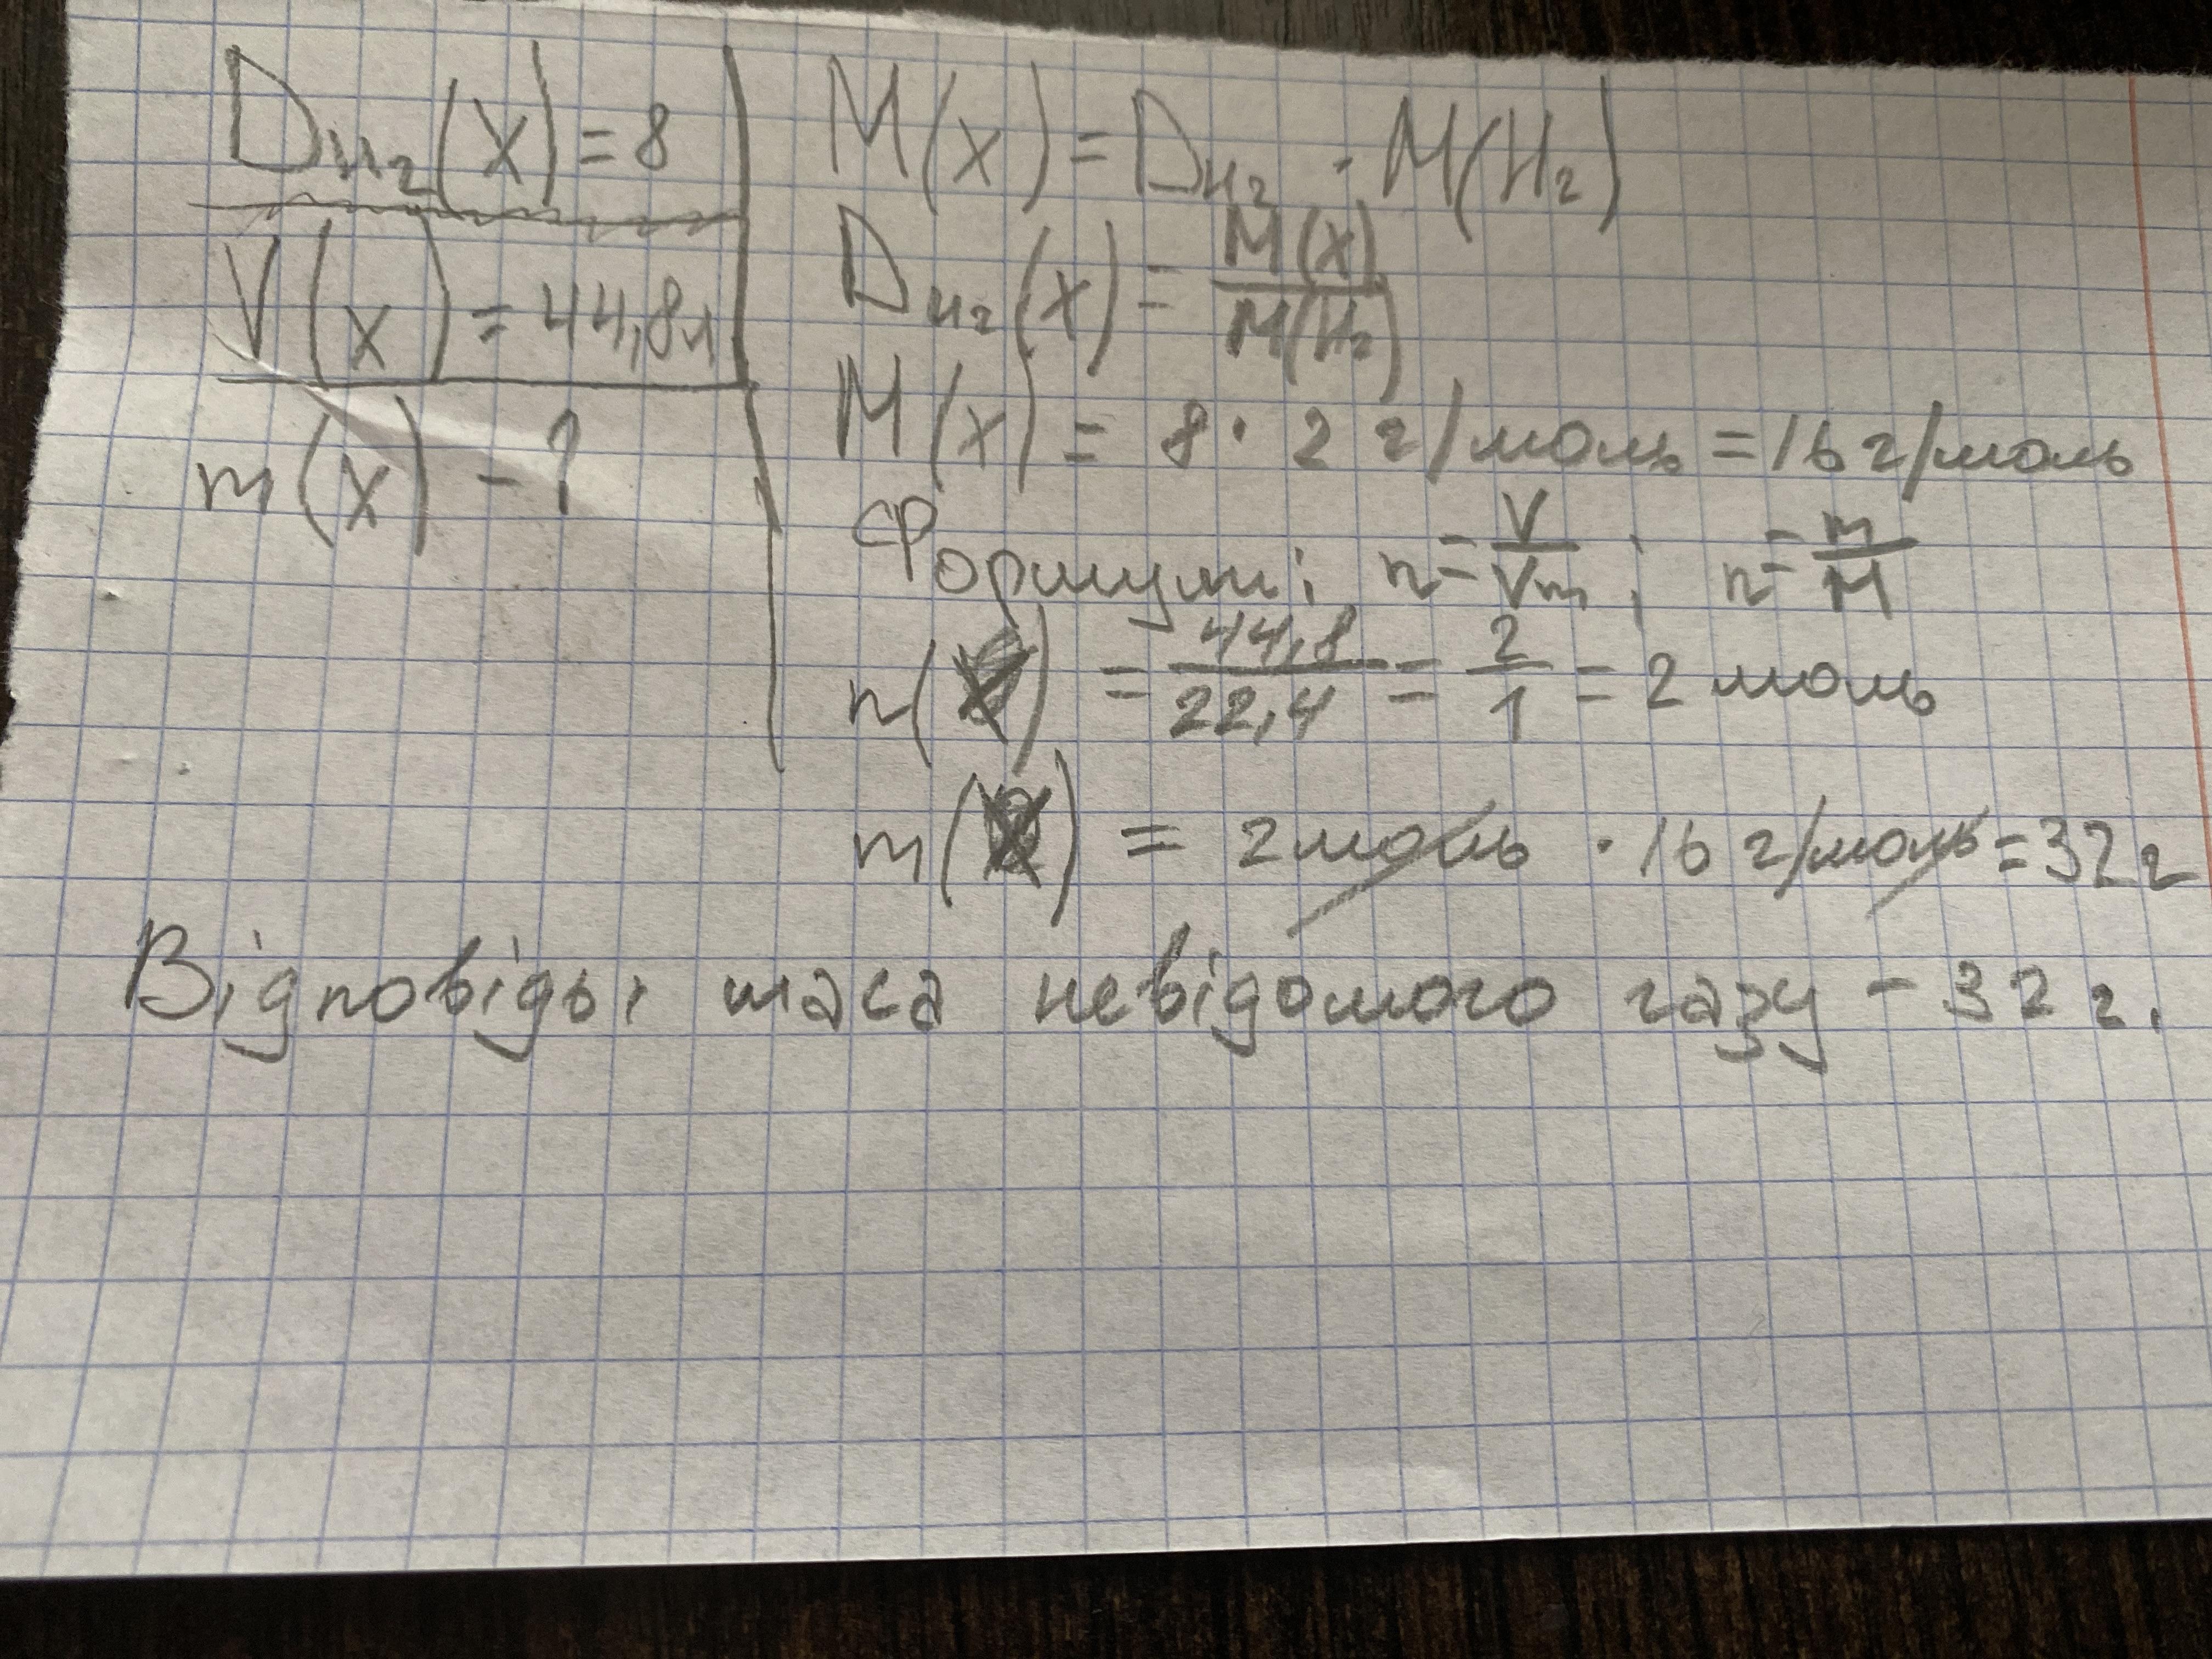 D_H₂(X) = 8
V(X) = 44,8л
m(X) - ?
M(X) = D_H₂ · M(H₂)
D_H₂(X) = M(X)/M(H₂)
M(X) = 8 · 2 г/моль = 16 г/моль
Формули: n = V/Vm ; n = m/M
n(X) = 44,8/22,4 = 2/1 = 2 моль
m(X) = 2 моль · 16 г/моль = 32 г
Відповідь: маса невідомого газу - 32 г.